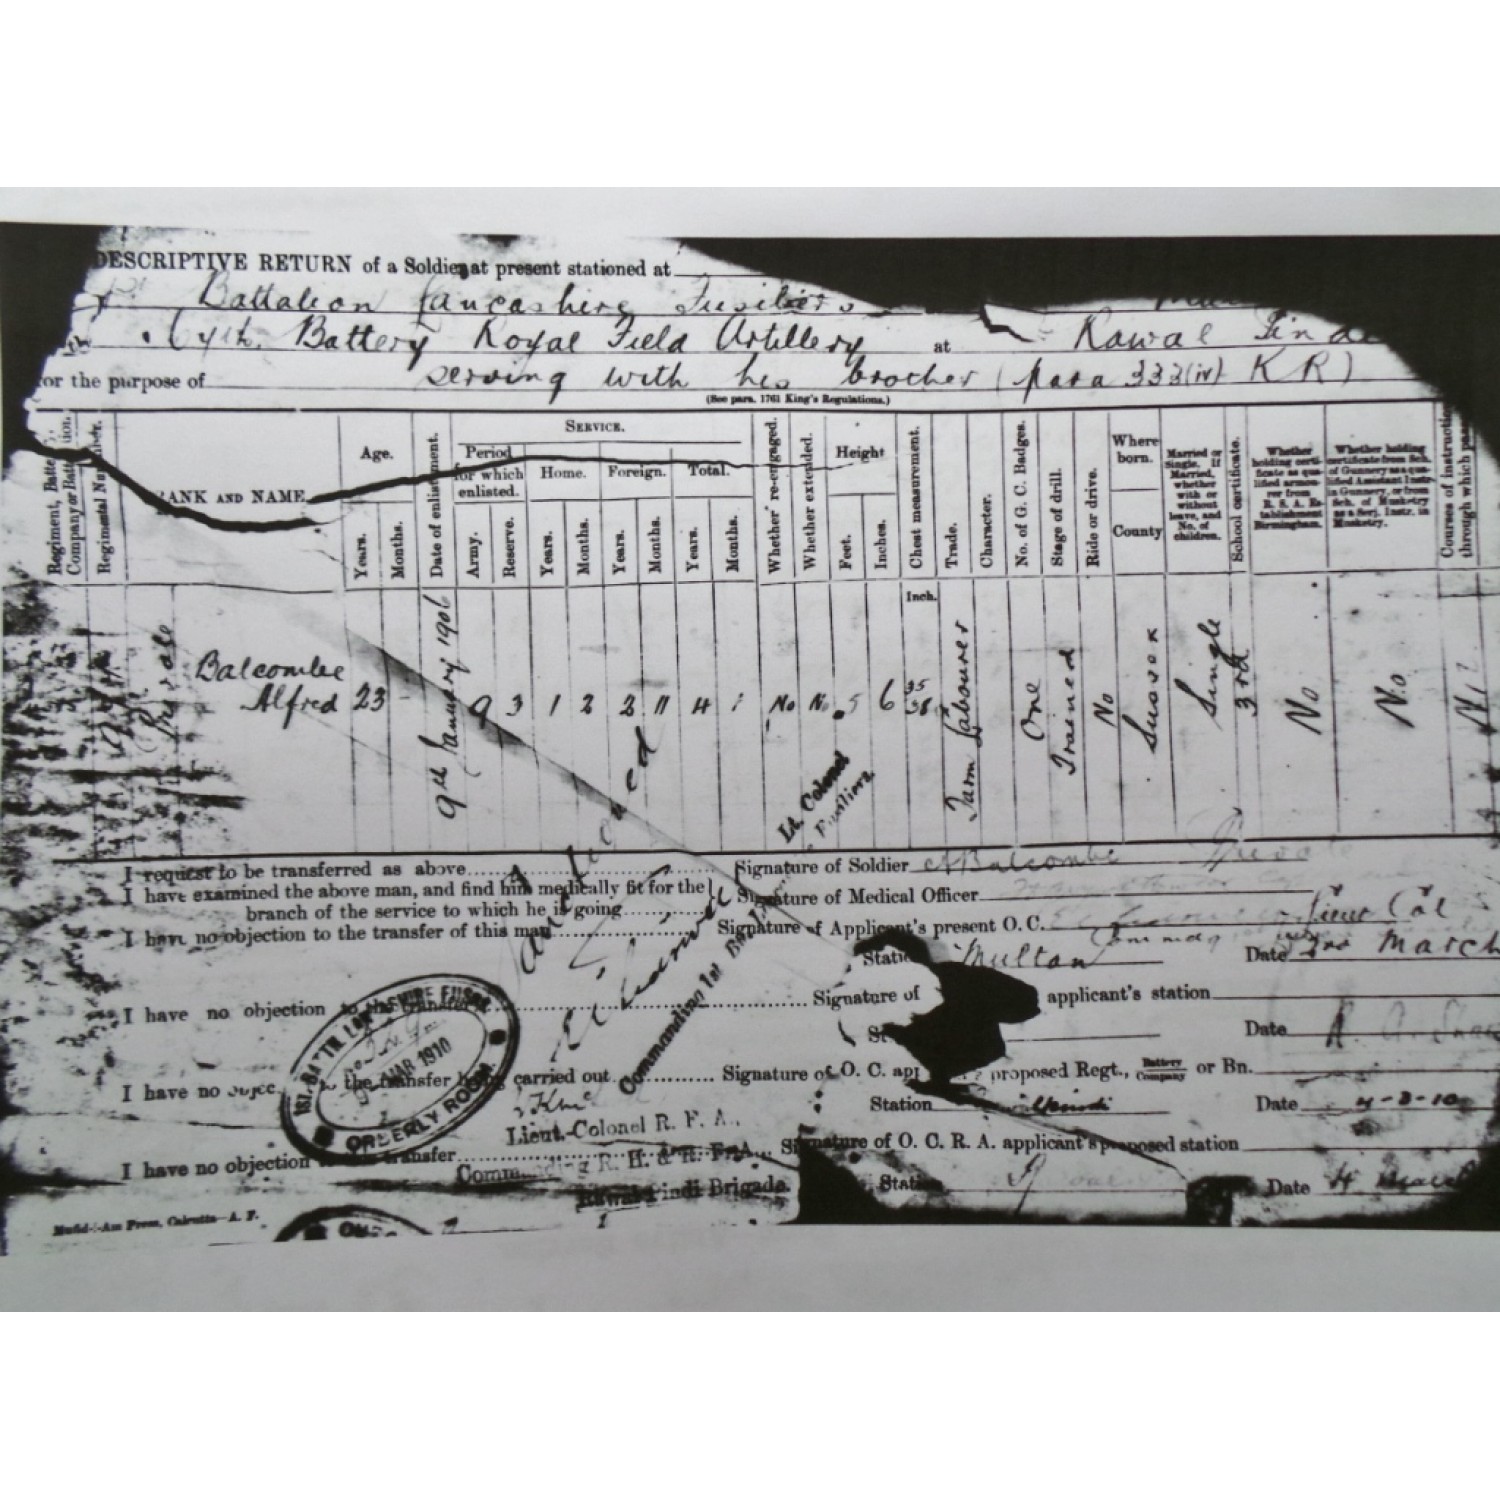 DESCRIPTIVE RETURN of a Soldier at present stationed at
Battalion Lancashire Fusiliers
Battery Royal Field Artillery at Rawal Pindi
for the purpose of serving with his brother (para 333(iv) KR)
(See para. 1761 King's Regulations.)
SERVICE.
Regiment, Company or
Regimental
RANK AND NAME
Age.
Years.
Months.
Date of enlistment.
Period for which enlisted.
Army.
Reserve.
Home.
Years.
Months.
Foreign.
Years.
Months.
Total.
Years.
Months.
Whether re-engaged.
Whether extended.
Height
Feet.
Inches.
Chest measurement.
Trade.
Character.
No. of G. C. Badges.
Stage of drill.
Ride or drive.
Where born.
County
Married or Single. If Married, whether with or without leave, and No. of children.
School certificate.
Whether holding certificate as qualified armorer from R. S. A. Establishment Birmingham.
Whether holding certificate from Sch. of Gunnery as a qualified Assistant Instr. in Gunnery, or from Sch. of Musketry as a Serj. Instr. in Musketry.
Courses of instruction through which
Inch.
Private
Balcombe
Alfred 23 - 9th January 1906 9 3 1 2 2 11 4 1 No No 5 6 35 38 Farm Labourer One Trained No Sussex Single 3rd No No Nil
Sanctioned
Lt. Colonel
Fusiliers
Commanding 1st Bn.
I request to be transferred as above Signature of Soldier A Balcombe Private
I have examined the above man, and find him medically fit for the branch of the service to which he is going Signature of Medical Officer
I have no objection to the transfer of this man Signature of Applicant's present O. C. Lieut Col
Station Multan Date 3rd March
I have no objection to the transfer Signature of applicant's station
Date
I have no objec the transfer being carried out Signature of O. C. proposed Regt., Battery Company or Bn.
Station Date 4-3-10
Lieut.-Colonel R. F. A.,
I have no objection transfer Signature of O. C. R. A. applicant's proposed station
Commanding R. H. & R. F. A.
Rawal Pindi Brigade.
Station Date 4 March
1ST. BATTN. LANCASHIRE FUSRS.
MAR 1910
ORDERLY ROOM
Mufid-i-Am Press, Calcutta—A. F.